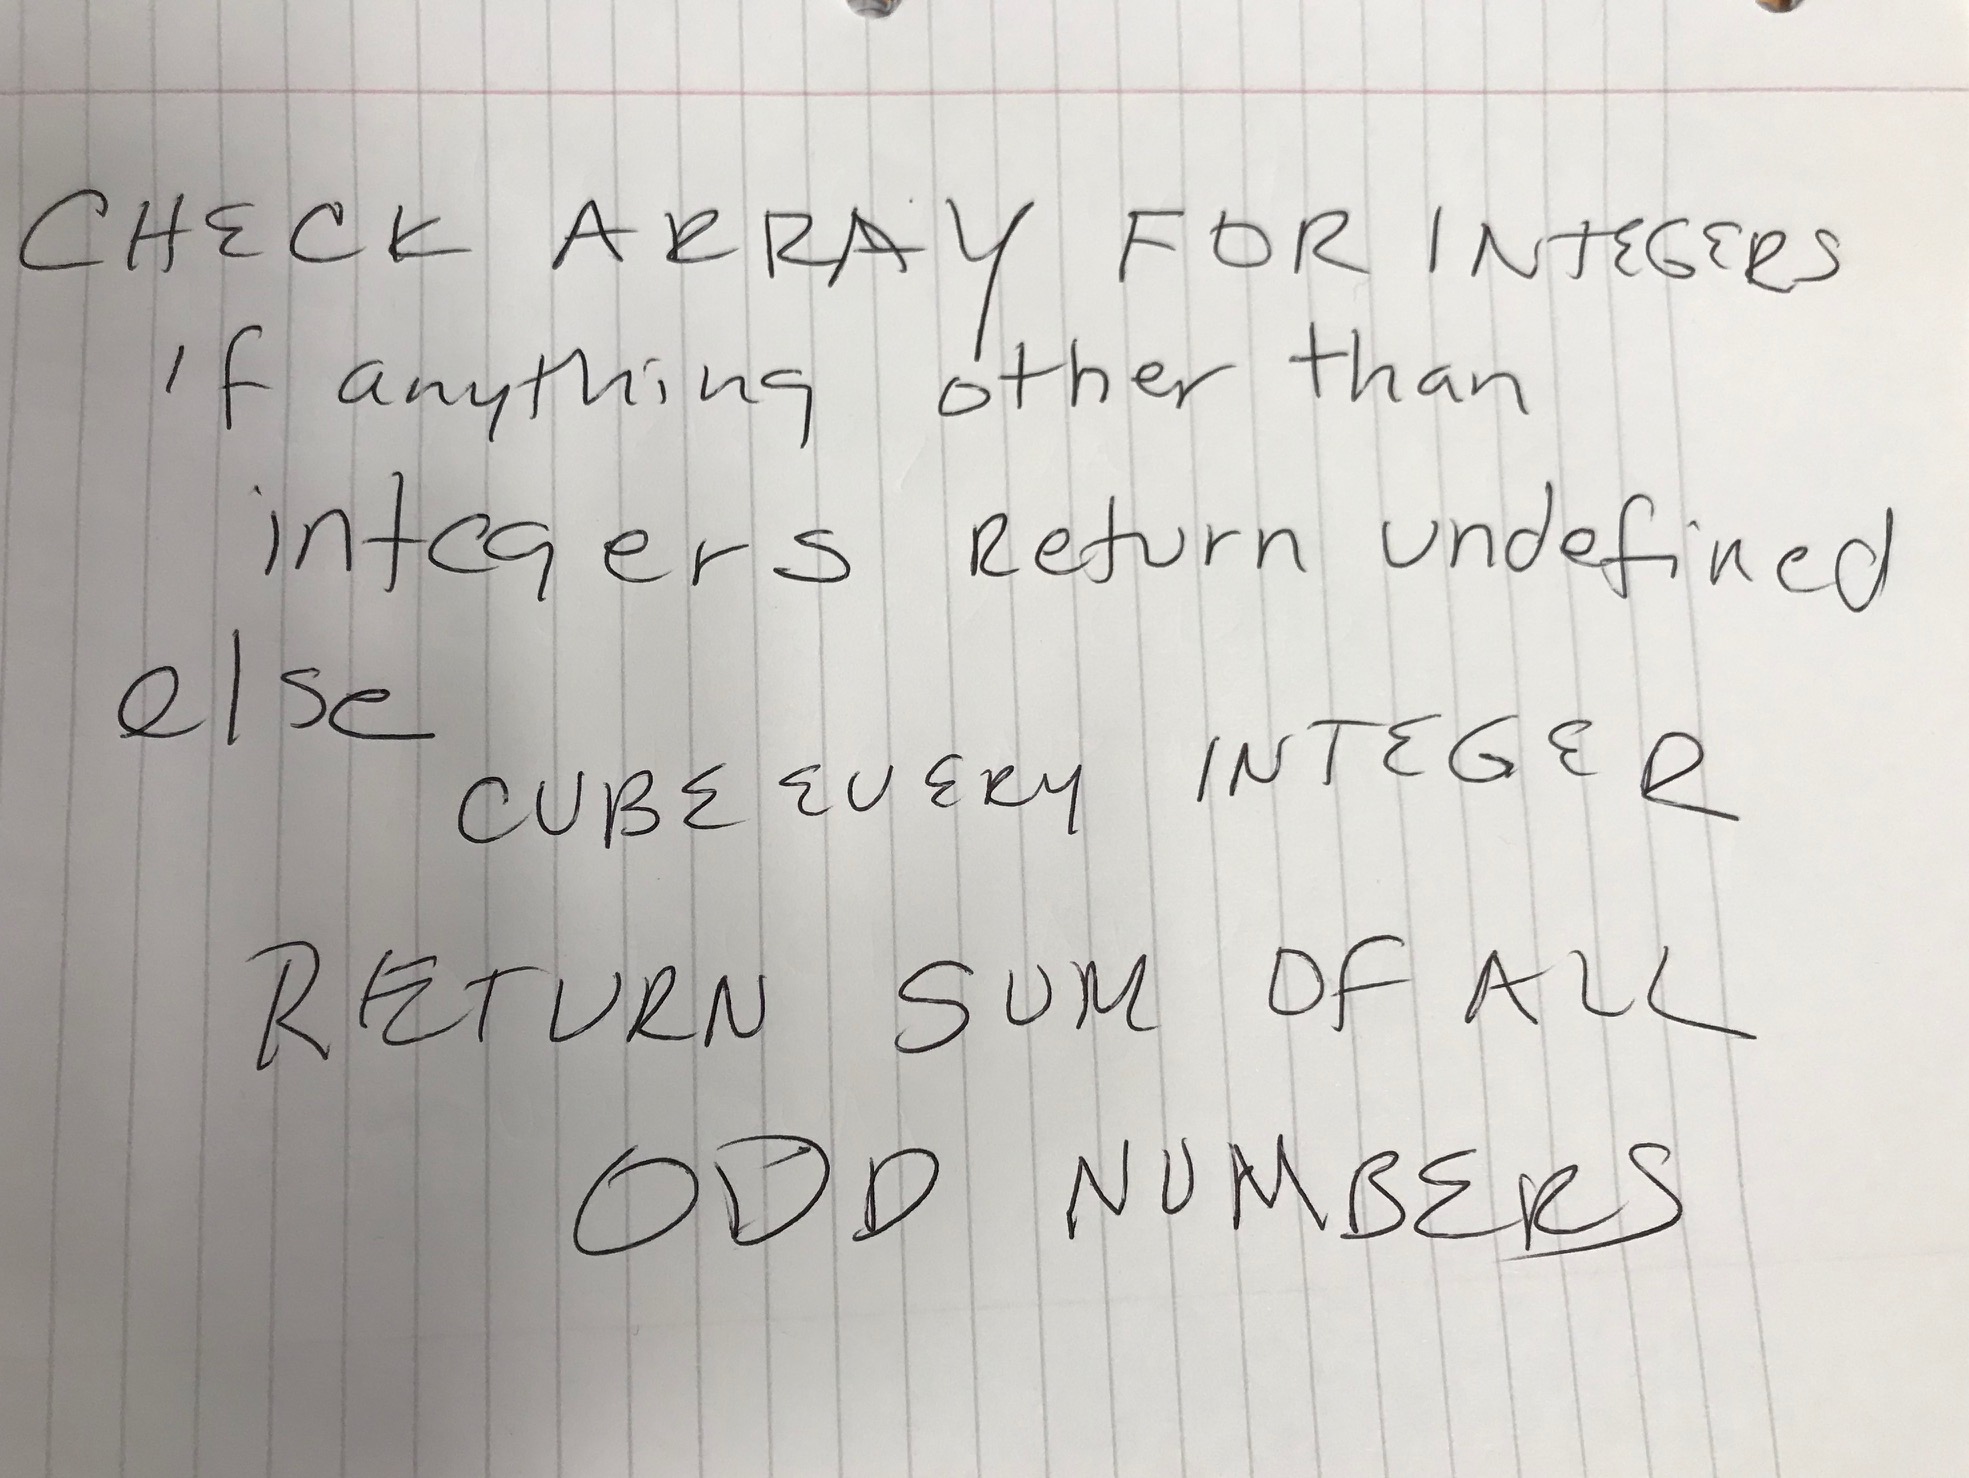 CHECK ARRAY FOR INTEGERS
if anything other than
integers Return undefined
else
CUBE EVERY INTEGER
RETURN SUM OF ALL
ODD NUMBERS